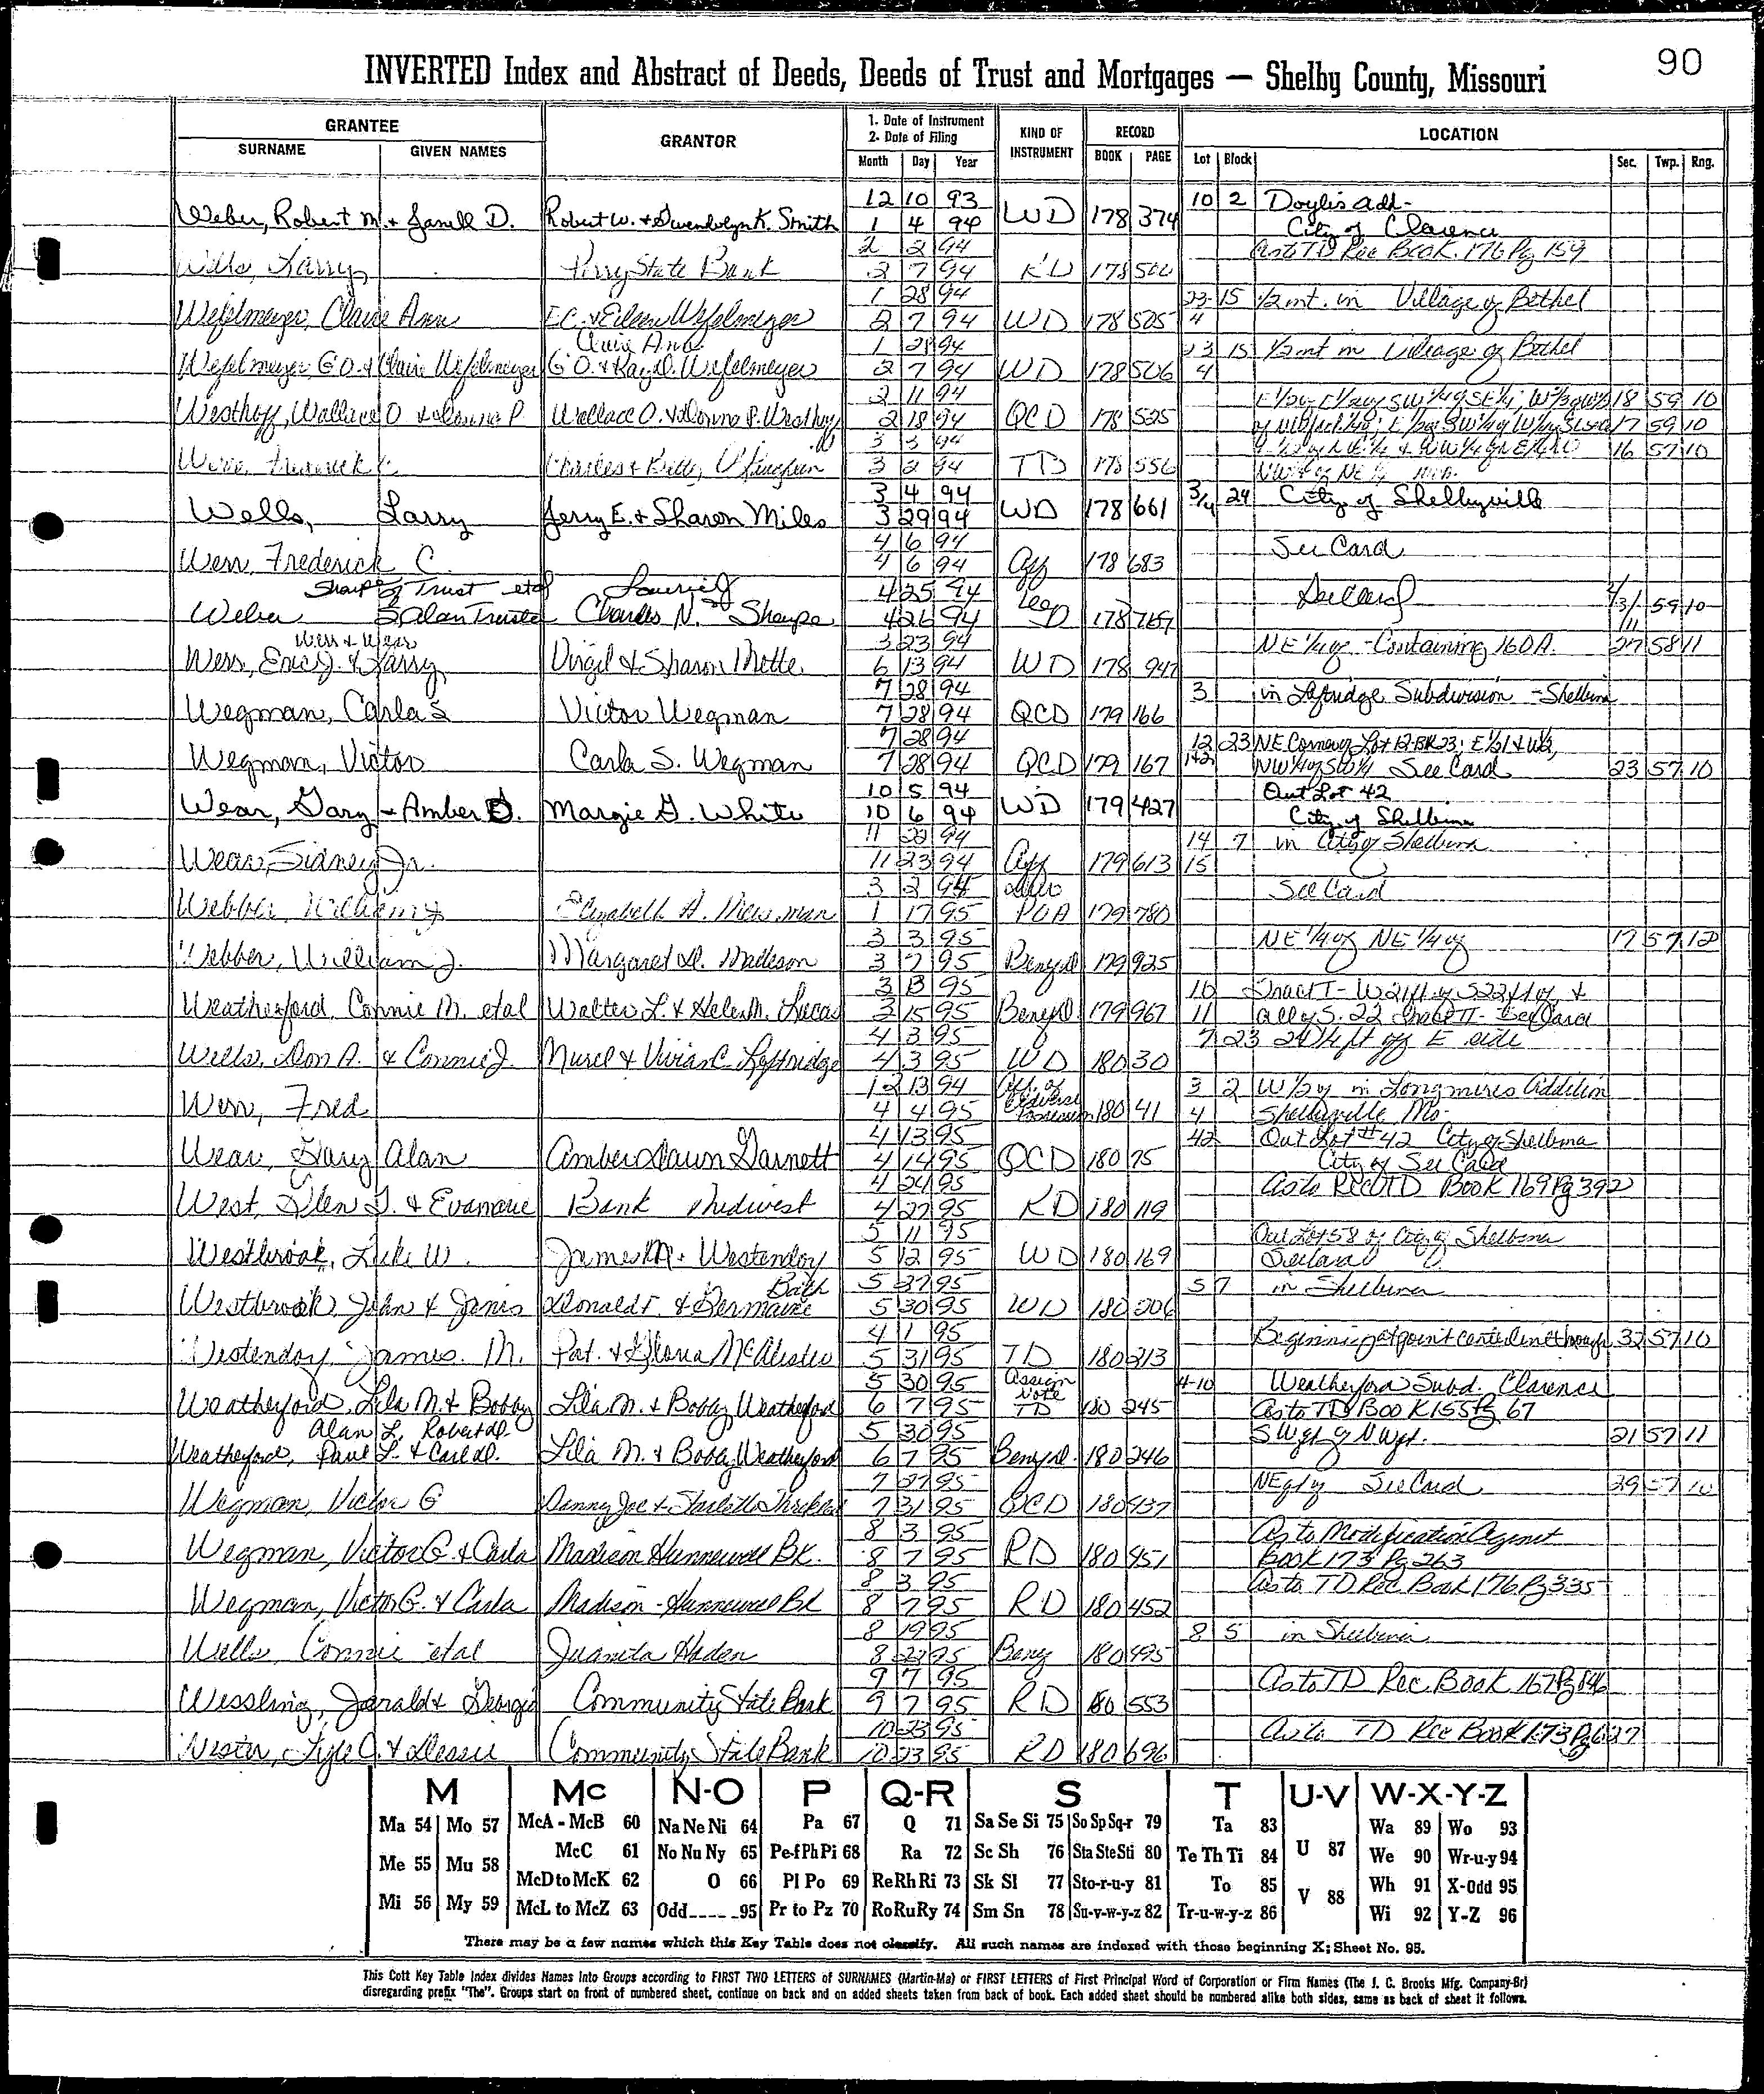 90
INVERTED Index and Abstract of Deeds, Deeds of Trust and Mortgages — Shelby County, Missouri
GRANTEE
SURNAME GIVEN NAMES
GRANTOR
1. Date of Instrument
2. Date of Filing
Month Day Year
KIND OF INSTRUMENT
RECORD
BOOK PAGE
LOCATION
Lot Block Sec. Twp. Rng.
12 10 93 10 2 Doyles add-
Weber, Robert M. & Janell D. Robert W. & Gwendolyn K. Smith 1 4 94 WD 178 374 City of Clarence
2 2 94 As to TD Rec Book 176 Pg 159
Wells, Larry Perry State Bank 2 7 94 RD 178
1 28 94 23- 15 1/2 int. in Village of Bethel
Wefelmeyer, Claire Ann E.C. & Eileen Wefelmeyer 2 7 94 WD 178 505 4
Claire Ann
1 28 94 23 15 1/2 int in Village of Bethel
Wefelmeyer G O. & Claire Wefelmeyer G O. & Kay D. Wefelmeyer 2 7 94 WD 178 506 4
2 11 94 18 59 10
Westhoff, Wallace O & Donna P. Wallace O. & Donna P. Westhoff 2 18 94 QCD 178 525 17 59 10
3 3 94 16 57 10
Charles & 3 2 94 TD 178 556
3 4 94 3/4 24 City of Shelbyville
Wells, Larry Jerry E. & Sharon Miles 3 29 94 WD 178 661
4 6 94 See Card
Werr, Frederick C. 4 6 94 Aff 178 683
Sharpe Trust etal 4 25 94 See Card 59 10
Weber Alan Trustee Charles N. Sharpe 4 26 94 178
3 23 94 NE 1/4 of - Containing 160 A. 27 58 11
Werr, Eric J. & Larry Virgil & Sharon Mette 6 13 94 WD 178 947
7 28 94 3 in Leftridge Subdivision - Shelbina
Wegman, Carla S Victor Wegman 7 28 94 QCD 179 166
7 28 94 12 23 NE Corner of Lot 12-BK 23;
Wegman, Victor Carla S. Wegman 7 28 94 QCD 179 167 1+2 NW 1/4 of SW 1/4 See Card 23 57 10
10 5 94 Out Lot 42
Wear, Gary & Amber D. Margie G. White 10 6 94 WD 179 427 City of Shelbina
11 22 94 14 7 in City of Shelbina
Wear, Sidney Jr. 11 23 94 Aff 179 613 15
3 2 94 See Card
Webber, William J Elizabeth A. 1 17 95 POA 179 780
3 3 95 NE 1/4 of NE 1/4 of 17 57 12
Webber, William J. Margaret D. Matteson 3 7 95 Benef D 179 925
3 13 95 10
Weatherford, Connie M. etal Walter L. & Helen M. Lucas 3 15 95 Benef D 179 967 11 See Card
4 3 95 7 23 24 1/4 ft off E side
Wells, Don A. & Connie J. Murel & Vivian C. Leftridge 4 3 95 WD 180 30
12 13 94 Aff. of Adverse Possession 3 2 W 1/2 of in Longmires Addition
Werr, Fred 4 4 95 180 41 4 Shelbyville Mo-
4 13 95 42 Out Lot #42 City of Shelbina
Wear, Gary Alan Amber Dawn Garnett 4 14 95 QCD 180 75 City of See Card
4 24 95 As to Rec TD Book 169 Pg 392
West, Glen J. & Evamarie Bank Midwest 4 27 95 RD 180 119
5 11 95 Out Lot 58 of City of Shelbina
Westbrook, Luke W. James M. Westendorf 5 12 95 WD 180 169 See Card
Bath
5 27 95 5 7 in Shelbina
Westbrook, John & Janis Donald F. & Germaine 5 30 95 WD 180 206
4 1 95 Beginning at point centerline through 32 57 10
Westendorf, James M. Pat. & Gloria McAlister 5 31 95 TD 180 213
5 30 95 Assign Note 4-10 Weatherford Subd. Clarence
Weatherford, Lila M. & Bobby Lila M. & Bobby Weatherford 6 7 95 TD 180 245 As to TD Book 155 Pg 67
Alan L. Robert D. 5 30 95 21 57 11
Weatherford, Paul L. & Carl D. Lila M. & Bobby Weatherford 6 7 95 Benef D. 180 246
7 27 95 See Card 29 57 10
Wegman, Victor G Danny Joe & 7 31 95 QCD 180 437
8 3 95 As to Modification Agmt
Wegman, Victor G & Carla Madison Hunnewell Bk. 8 7 95 RD 180 451 Book 173 Pg 263
8 3 95 As to TD Rec Book 176 Pg 335
Wegman, Victor G. & Carla Madison-Hunnewell Bk 8 7 95 RD 180 452
8 19 95 8 5 in Shelbina
Wells, Connie etal Juanita Haden 8 95 Benef 180 495
9 7 95 As to TD Rec. Book 167 Pg
Wessling, Jerald & Georgia Community State Bank 9 7 95 RD 180 553
10 23 95 As to TD Rec Book 173 Pg 627
Wester, Lyle & Dessie Community State Bank 10 23 95 RD 180 696
M Mc N-O P Q-R S T U-V W-X-Y-Z
Ma 54 Mo 57 McA - McB 60 Na Ne Ni 64 Pa 67 Q 71 Sa Se Si 75 So Sp Sq-r 79 Ta 83 U 87 Wa 89 Wo 93
Me 55 Mu 58 McC 61 No Nu Ny 65 Pe-f Ph Pi 68 Ra 72 Sc Sh 76 Sta Ste Sti 80 Te Th Ti 84 We 90 Wr-u-y 94
McD to McK 62 O 66 Pl Po 69 Re Rh Ri 73 Sk Sl 77 Sto-r-u-y 81 To 85 V 88 Wh 91 X-Odd 95
Mi 56 My 59 McL to McZ 63 Odd_____95 Pr to Pz 70 Ro Ru Ry 74 Sm Sn 78 Su-v-w-y-z 82 Tr-u-w-y-z 86 Wi 92 Y-Z 96
There may be a few names which this Key Table does not classify. All such names are indexed with those beginning X; Sheet No. 95.
This Cott Key Table Index divides Names Into Groups according to FIRST TWO LETTERS of SURNAMES (Martin-Ma) or FIRST LETTERS of First Principal Word of Corporation or Firm Names (The J. C. Brooks Mfg. Company-Br)
disregarding prefix "The". Groups start on front of numbered sheet, continue on back and on added sheets taken from back of book. Each added sheet should be numbered alike both sides, same as back of sheet it follows.